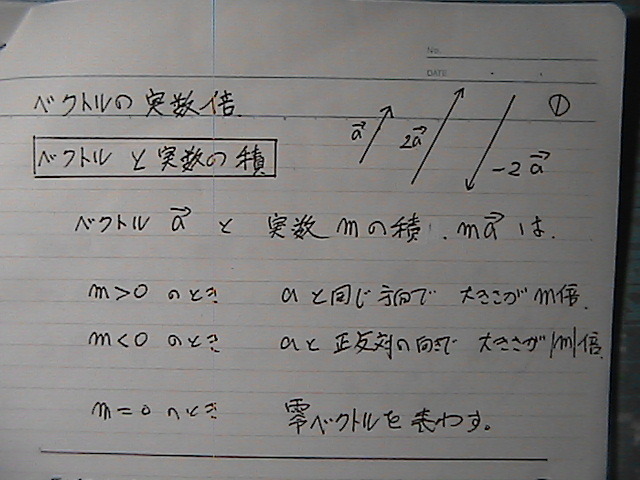 No.
DATE
ベクトルの実数倍. ①
a→ 2a→ -2a→
ベクトルと実数の積
ベクトル a→ と 実数 m の積. ma→ は.
m>0 のとき aと同じ方向で 大きさが m倍.
m<0 のとき aと正反対の向きで 大きさが |m|倍.
m=0 のとき 零ベクトルを表わす。